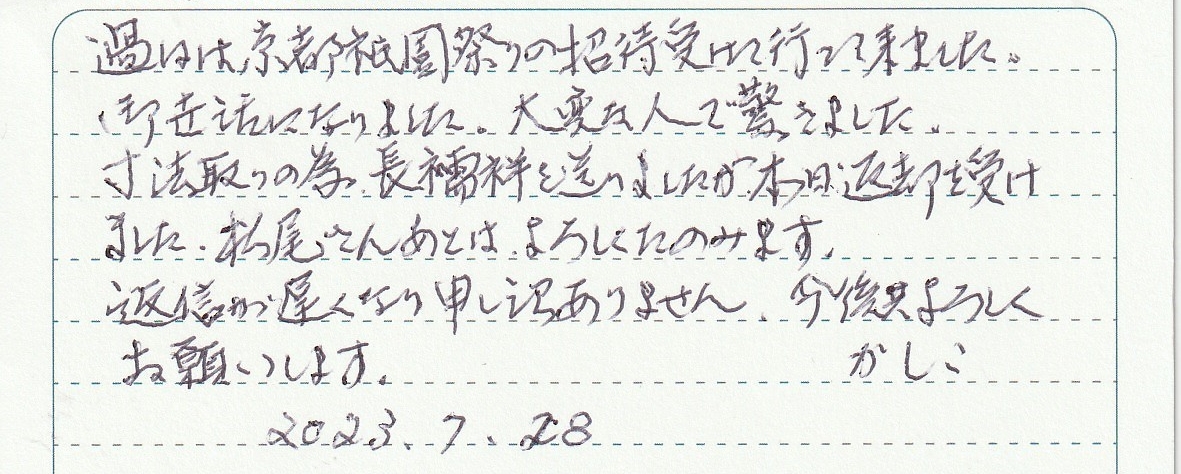 過日は京都祇園祭りの招待受けて行って来ました。
御世話になりました。大変な人で驚きました。
寸法取りの為、長襦袢を送りましたが本日返却を受け
ました。松尾さんあとは、よろしくたのみます。
返信が遅くなり申し訳ありません、今後共よろしく
お願いします。 かしこ
2023.7.28